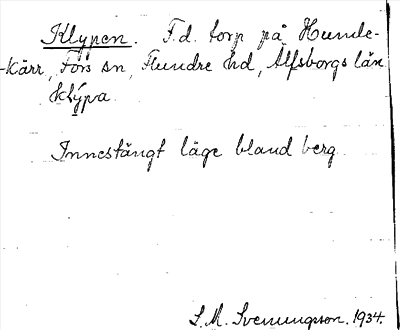 Klypen. F.d. torp på Humle-
-kärr, Fors sn, Flundre hd, Älfsborgs län
klýpa.
Innestängt läge bland berg
S. M. Svenungson. 1934.